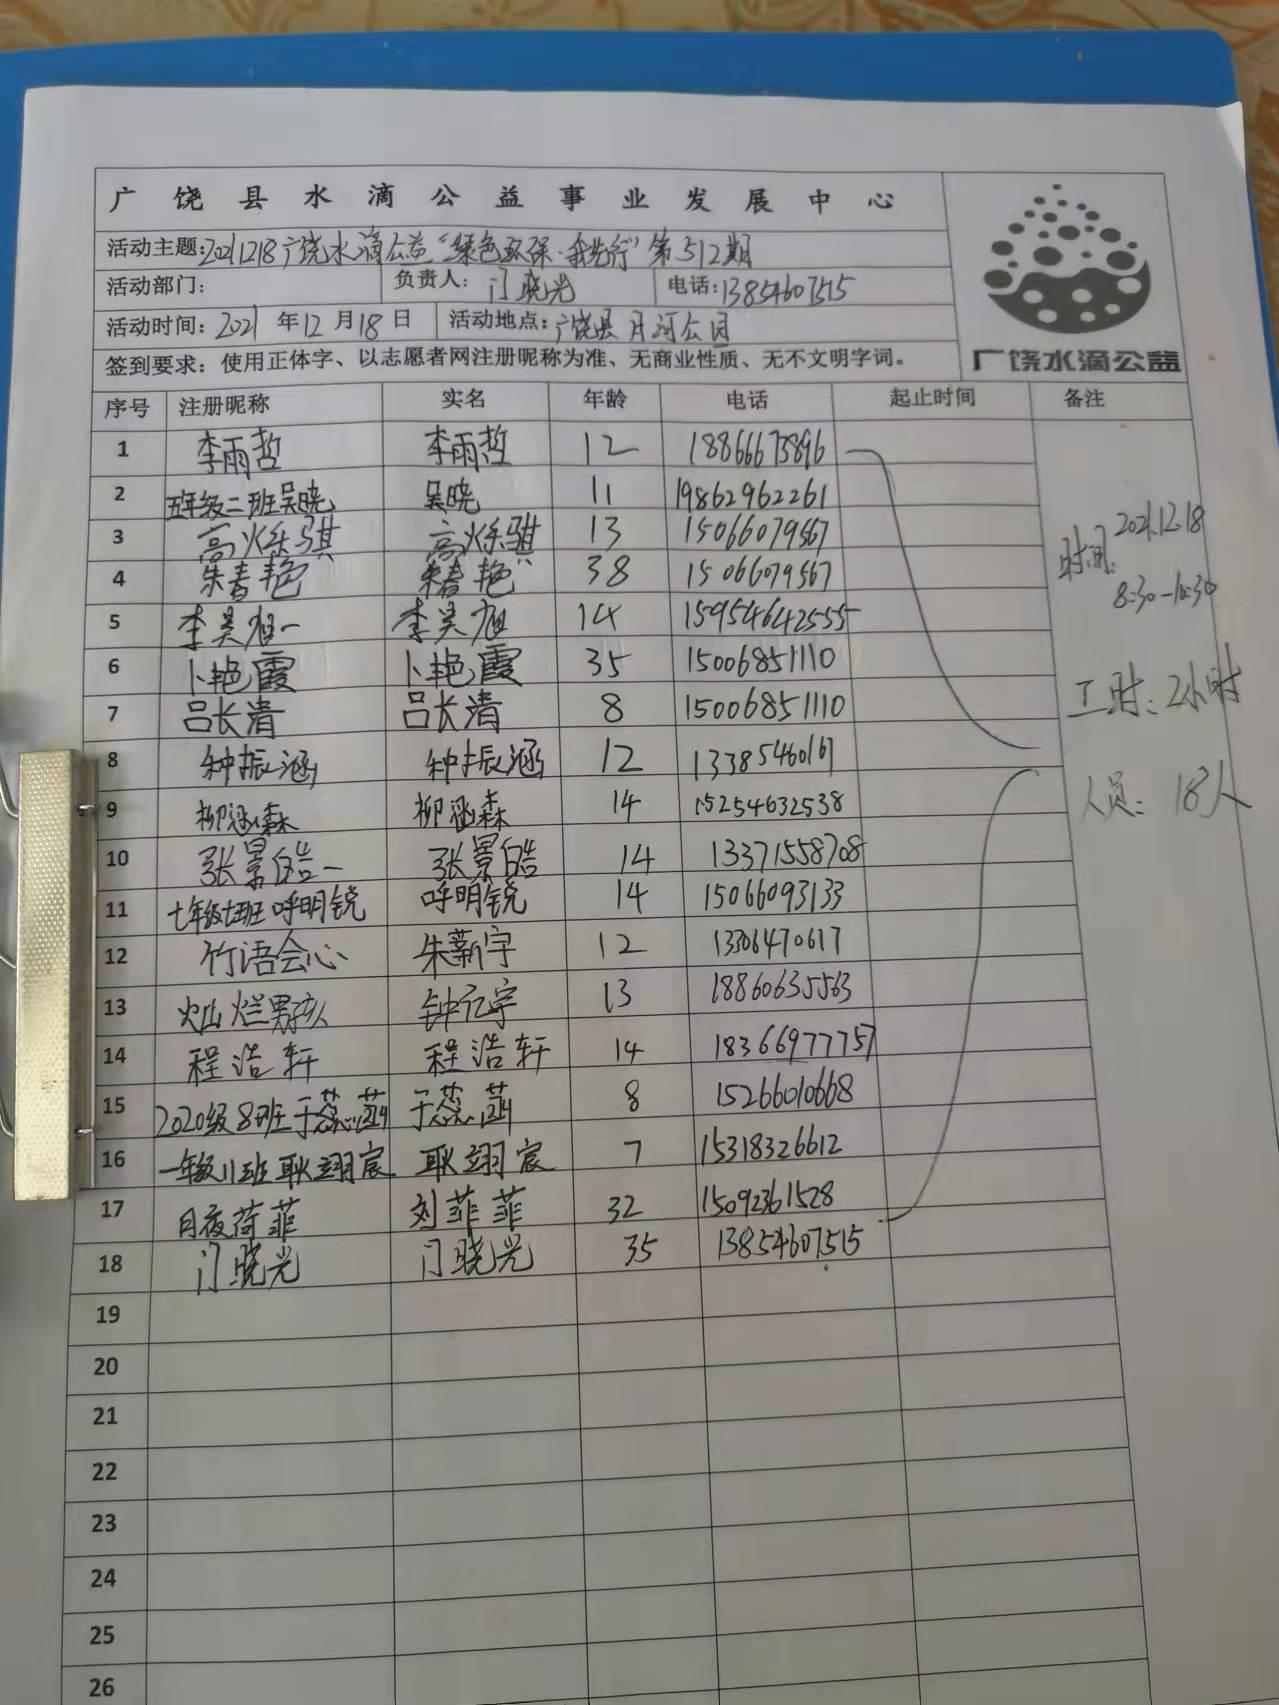 广饶县水滴公益事业发展中心
活动主题:20211218广饶水滴公益“绿色环保·我先行”第512期
活动部门: 负责人: 门晓光 电话:13854607515
活动时间: 2021年12月18日 活动地点:广饶县月河公园
签到要求: 使用正体字、以志愿者网注册昵称为准、无商业性质、无不文明字词。
广饶水滴公益
序号 注册昵称 实名 年龄 电话 起止时间 备注
1 李雨哲 李雨哲 12 18866673896
2 五年级二班吴晓 吴晓 11 19862962261
3 高烁骐 高烁骐 13 15066079567
4 朱春艳 朱春艳 38 15066079567
5 李昊旭一 李昊旭 14 15954642555
6 卜艳霞 卜艳霞 35 15006851110
7 吕长清 吕长清 8 15006851110
8 种振涵 种振涵 12 13385460167
9 柳涵森 柳涵森 14 15254632538
10 张景皓一 张景皓 14 13371558708
11 七年级七班呼明锐 呼明锐 14 15066093133
12 竹语会心 朱薪宇 12 13306470617
13 灿烂男孩 钟元宇 13 18860635563
14 程浩轩 程浩轩 14 18366977757
15 2020级8班于蕊菡 于蕊菡 8 15266010668
16 一年级11班耿翊宸 耿翊宸 7 15318326612
17 月夜荷菲 刘菲菲 32 15092361528
18 门晓光 门晓光 35 13854607515
时间: 2021.12.18
8:30-10:30
工时: 2小时
人员: 18人
19
20
21
22
23
24
25
26